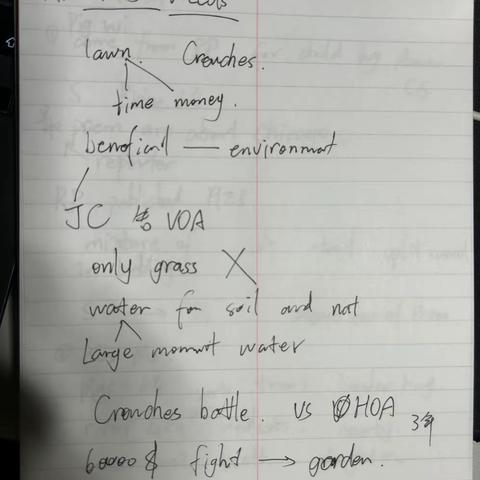 lawn. Crouches.
time money.
beneficial — environmat
JC 告 VOA
only grass X
water for soil and not
Large momunt water
Crouches battle. vs HOA 3年
60000 $ fight → garden.